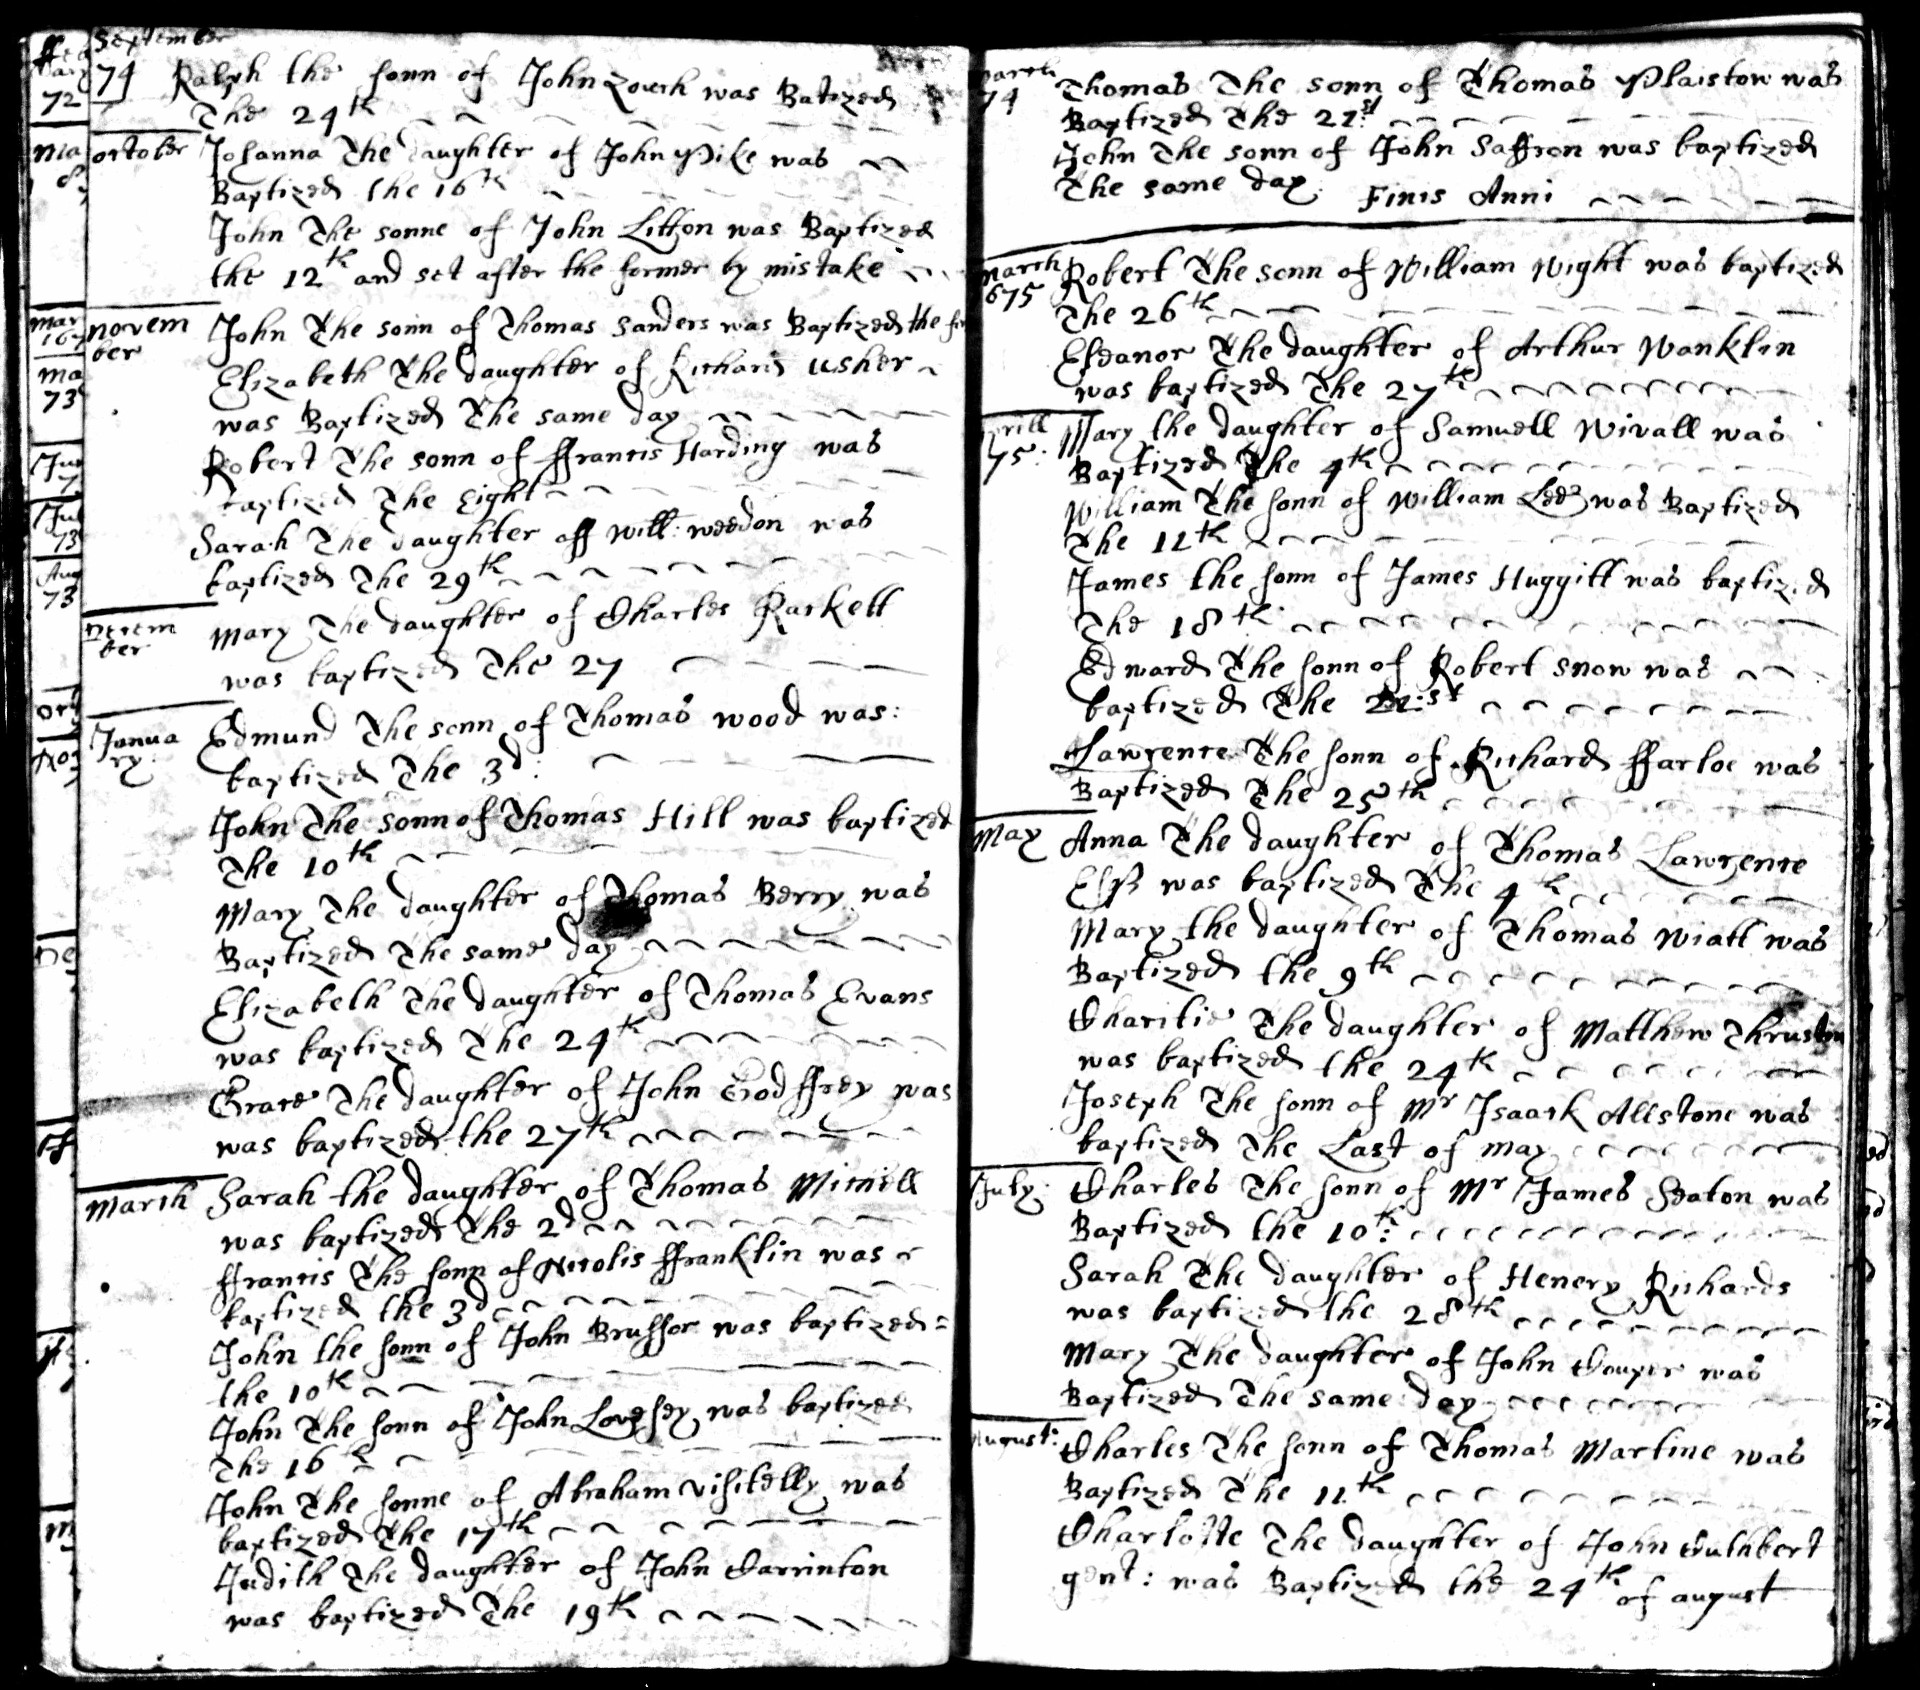 September
74 Ralph the sonn of John Zouch was Batized
The 24th
october Johanna The daughter of John Pike was
Baptized the 16th
John The sonne of John Litton was Baptized
the 12th and set after the former by mistake
novem John The sonn of Thomas Sanders was Baptized the
ber
Elizabeth The daughter of Richard Usher
was Baptized The same day
Robert The sonn of ffrancis Harding was
baptized The Eight
Sarah The daughter off Will: weedon was
baptized The 29th
Decem Mary The daughter of Charles Rackett
ber
was baptized The 27
Janua Edmund The sonn of Thomas wood was:
ry
baptized The 3d:
John The sonn of Thomas Hill was baptized
The 10th
Mary The daughter of Thomas Berry was
Baptized The same day
Elizabeth The daughter of Thomas Evans
was baptized The 24th
Grace The daughter of John Godffrey was
was baptized the 27th
March Sarah the daughter of Thomas
was baptized The 2d
ffrancis The sonn of Nicolis ffranklin was
baptized the 3d
John the sonn of John was baptized=
the 10th
John The sonn of John Lovesey was baptized
The 16th
John The sonne of Abraham visitelly was
baptized The 17th
Judith The daughter of John Carrinton
was baptized The 19th
march Thomas The sonn of Thomas Plaistow was
74 Baptized The 21st
John The sonn of John Saffron was baptized
The same day. Finis Anni
march Robert The sonn of William Wight was baptized
675
The 26th
Eleanor The daughter of Arthur Wanklin
was baptized The 27th
prill Mary the daughter of Samuell Wivall was
75: Baptized The 4th
William The sonn of William Lee was Baptized
The 11th
James the sonn of James Huggitt was baptized
The 18th
Edward The sonn of Robert Snow was
baptized The 21:st
Lawrence The sonn of Richard ffarloe was
Baptized The 25th
May Anna The daughter of Thomas Lawrence
Esqr was baptized The 4th
Mary the daughter of Thomas Wiatt was
Baptized the 9th
Charitie The daughter of Matthew Thruston
was baptized the 24th
Joseph The sonn of Mr Isaack Allstone was
baptized The Last of may
July Charles The sonn of Mr James Seaton was
Baptized the 10th:
Sarah The daughter of Henery Richards
was baptized the 28th
Mary The daughter of John Couper was
Baptized The same day
August: Charles The sonn of Thomas Martine was
Baptized The 11th
Charlotte The daughter of John Cuthbert
gent: was Baptized the 24th of august